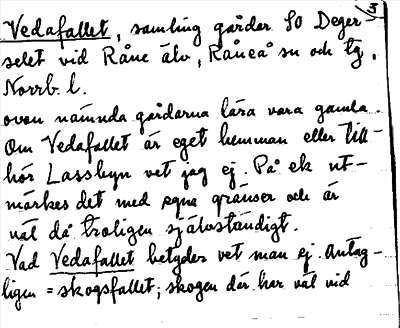 Vedafallet, samling gårdar SO Deger-
selet vid Råne älv, Råneå sn och tg,
Norrb. l.
ovan nämnda gårdarna lära vara gamla.
Om Vedafallet är eget hemman eller till-
hör Lassbyn vet jag ej. På ek ut-
märkes det med egna gränser och är
väl då troligen självständigt.
Vad Vedafallet betyder vet man ej. Antag-
ligen = skogsfallet; skogen där har väl vid